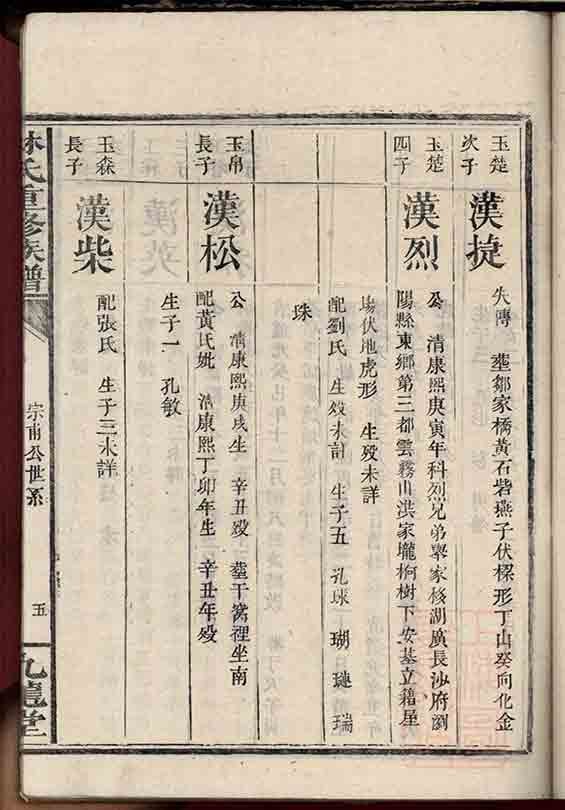 玉楚
次子
漢捷
失傳 塟鄒家橋黃石砦燕子伏樑形丁山癸向化金
玉楚
四子
漢烈
公 清康熙庚寅年科烈兄弟舉家移湖廣長沙府瀏
陽縣東鄉第三都雲霧山洪家壠桐樹下安基立籍星
塲伏地虎形 生殁未詳
配劉氏 生殁未計 生子五 孔球 瑚 璉 瑞
珠
玉帛
長子
漢松
公 清康熙庚戌生 辛丑殁 塟干窩裡坐南
配黃氏妣 清康熙丁卯年生 辛丑年殁
生子一 孔敏
玉森
長子
漢柴
配張氏 生子三未詳
林氏重修族譜
宗甫公世系
五
九龍堂